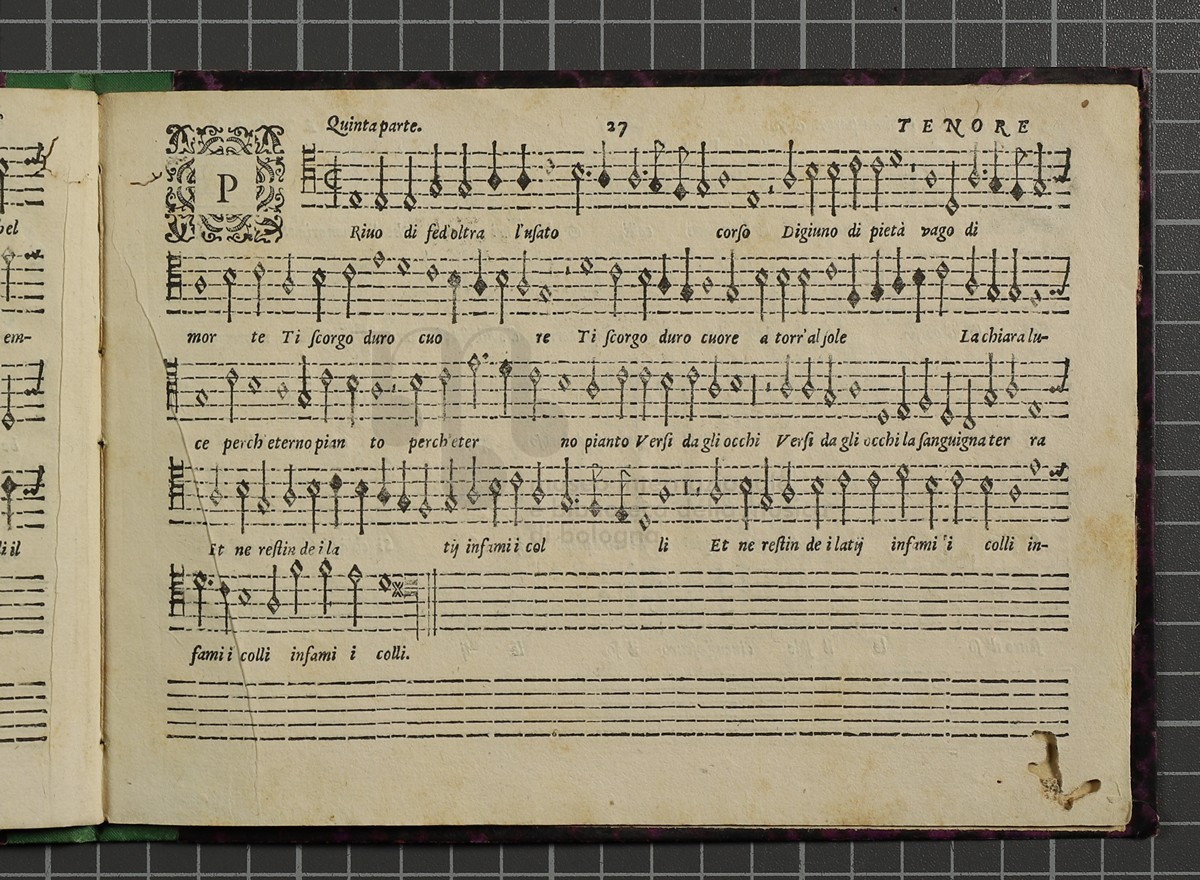 Quinta parte. 27 TENORE
P
Riuo di fed'oltra l'usato corso Digiuno di pietà vago di
mor te Ti scorgo duro cuo re Ti scorgo duro cuore a torr'al sole La chiara lu-
ce perch'eterno pian to perch'eter no pianto Versi da gli occhi Versi da gli occhi la sanguigna ter ra
Et ne restin de i la tij infami i col li Et ne restin de i latij infami i colli in-
fami i colli infami i colli.
pel
em-
li il